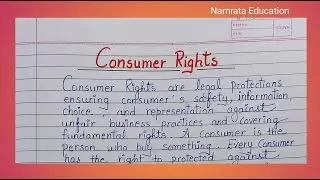 Namrata Education
Consumer Rights
Consumer Rights are legal protections
ensuring consumer's safety, information,
choice, and representation against
unfair business practices and covering
fundamental rights. A consumer is the
person who buy something. Every Consumer
has the right to protected against